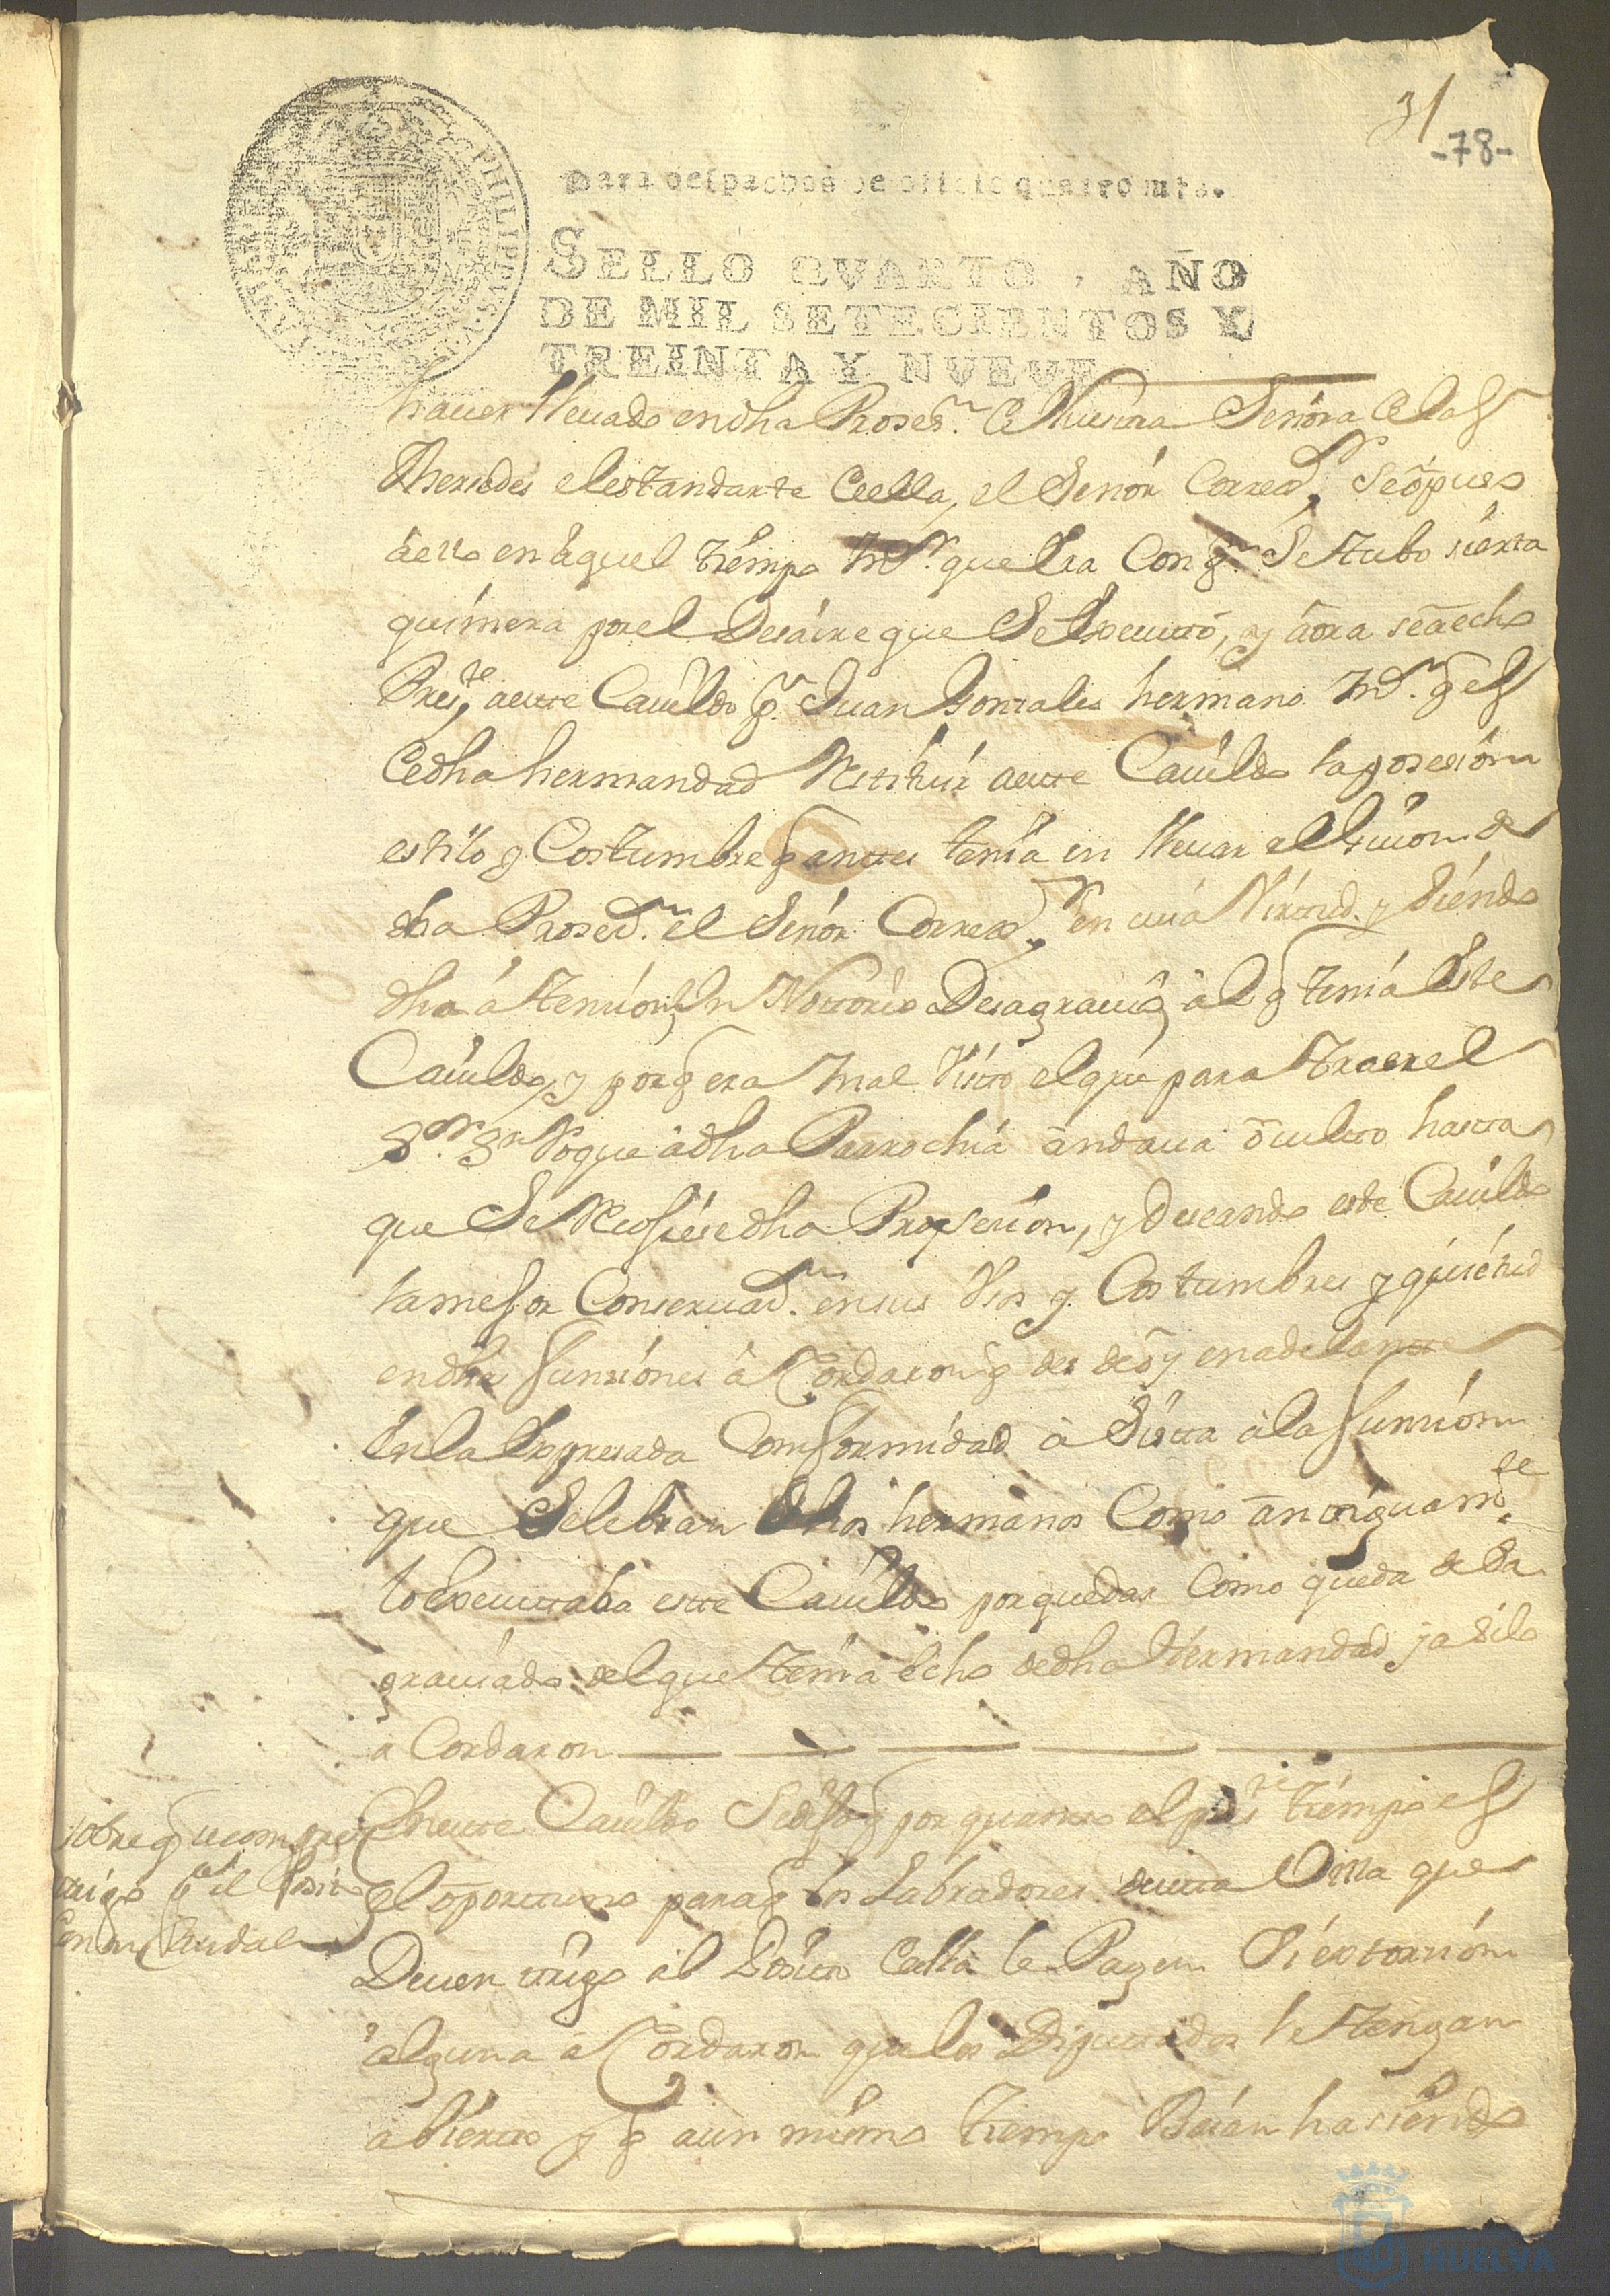 31
-78-
PHILIPPUS
Para despachos de oficio quatro mrs.
SELLO QVARTO, AÑO
DE MIL SETECIENTOS Y
TREINTA Y NVEVE
hauer lleuado en dha Prosesn. de Nuestra Señora de las
Mersedes el estandarte de ella, el Señor Corredr.
en aquel tiempo Mr. que era Con qn. Se tubo sierta
quimera por el Desaire que Se executtó, y aora se a echo
Prestte. a este Cauildo pr. Juan Gonzales hermano Mr. q es
de dha hermandad Restituir a este Cauildo la posesion
estilo y Costumbre q antes tenia en lleuar el Guion de
dha Prosesn. el Señor Corredr. en cuia Virtud. y Siendo
dha atension Un Notorio Desagrauio al q tenia Este
Cauildo, y porq era mal Visto el que para traer el
Sor. Sn Roque a dha Parrochia andaua oculto hasta
que Se Recosiese dha Prosesion, y Deseando este Cauildo
la mejor Conseruasn. en sus Vsos y Costumbres y quietud
en dhas funsiones acordaron q desde oy en adelante
En la Expresada Comformidad asista a la funsion
que Selebran Dhos hermanos Como antiguamte.
lo Executtaba este Cauildo por quedar Como queda desa
grauiado del que tenia echo de dha Hermandad y asi lo
a Cordaron
sobre q se compre
trigo pa. el Posito
con su Caudal
En este Cauildo Se dijo q por quanto el preste. tiempo es
el oportuno para q los Labradores de esta Villa que
Deuen trigo al Posito de ella le Paguen Sin extorsion
alguna a Cordaron que los Diputados le tengan
abierto y q a un mismo tiempo Baian hasiendo
HUELVA